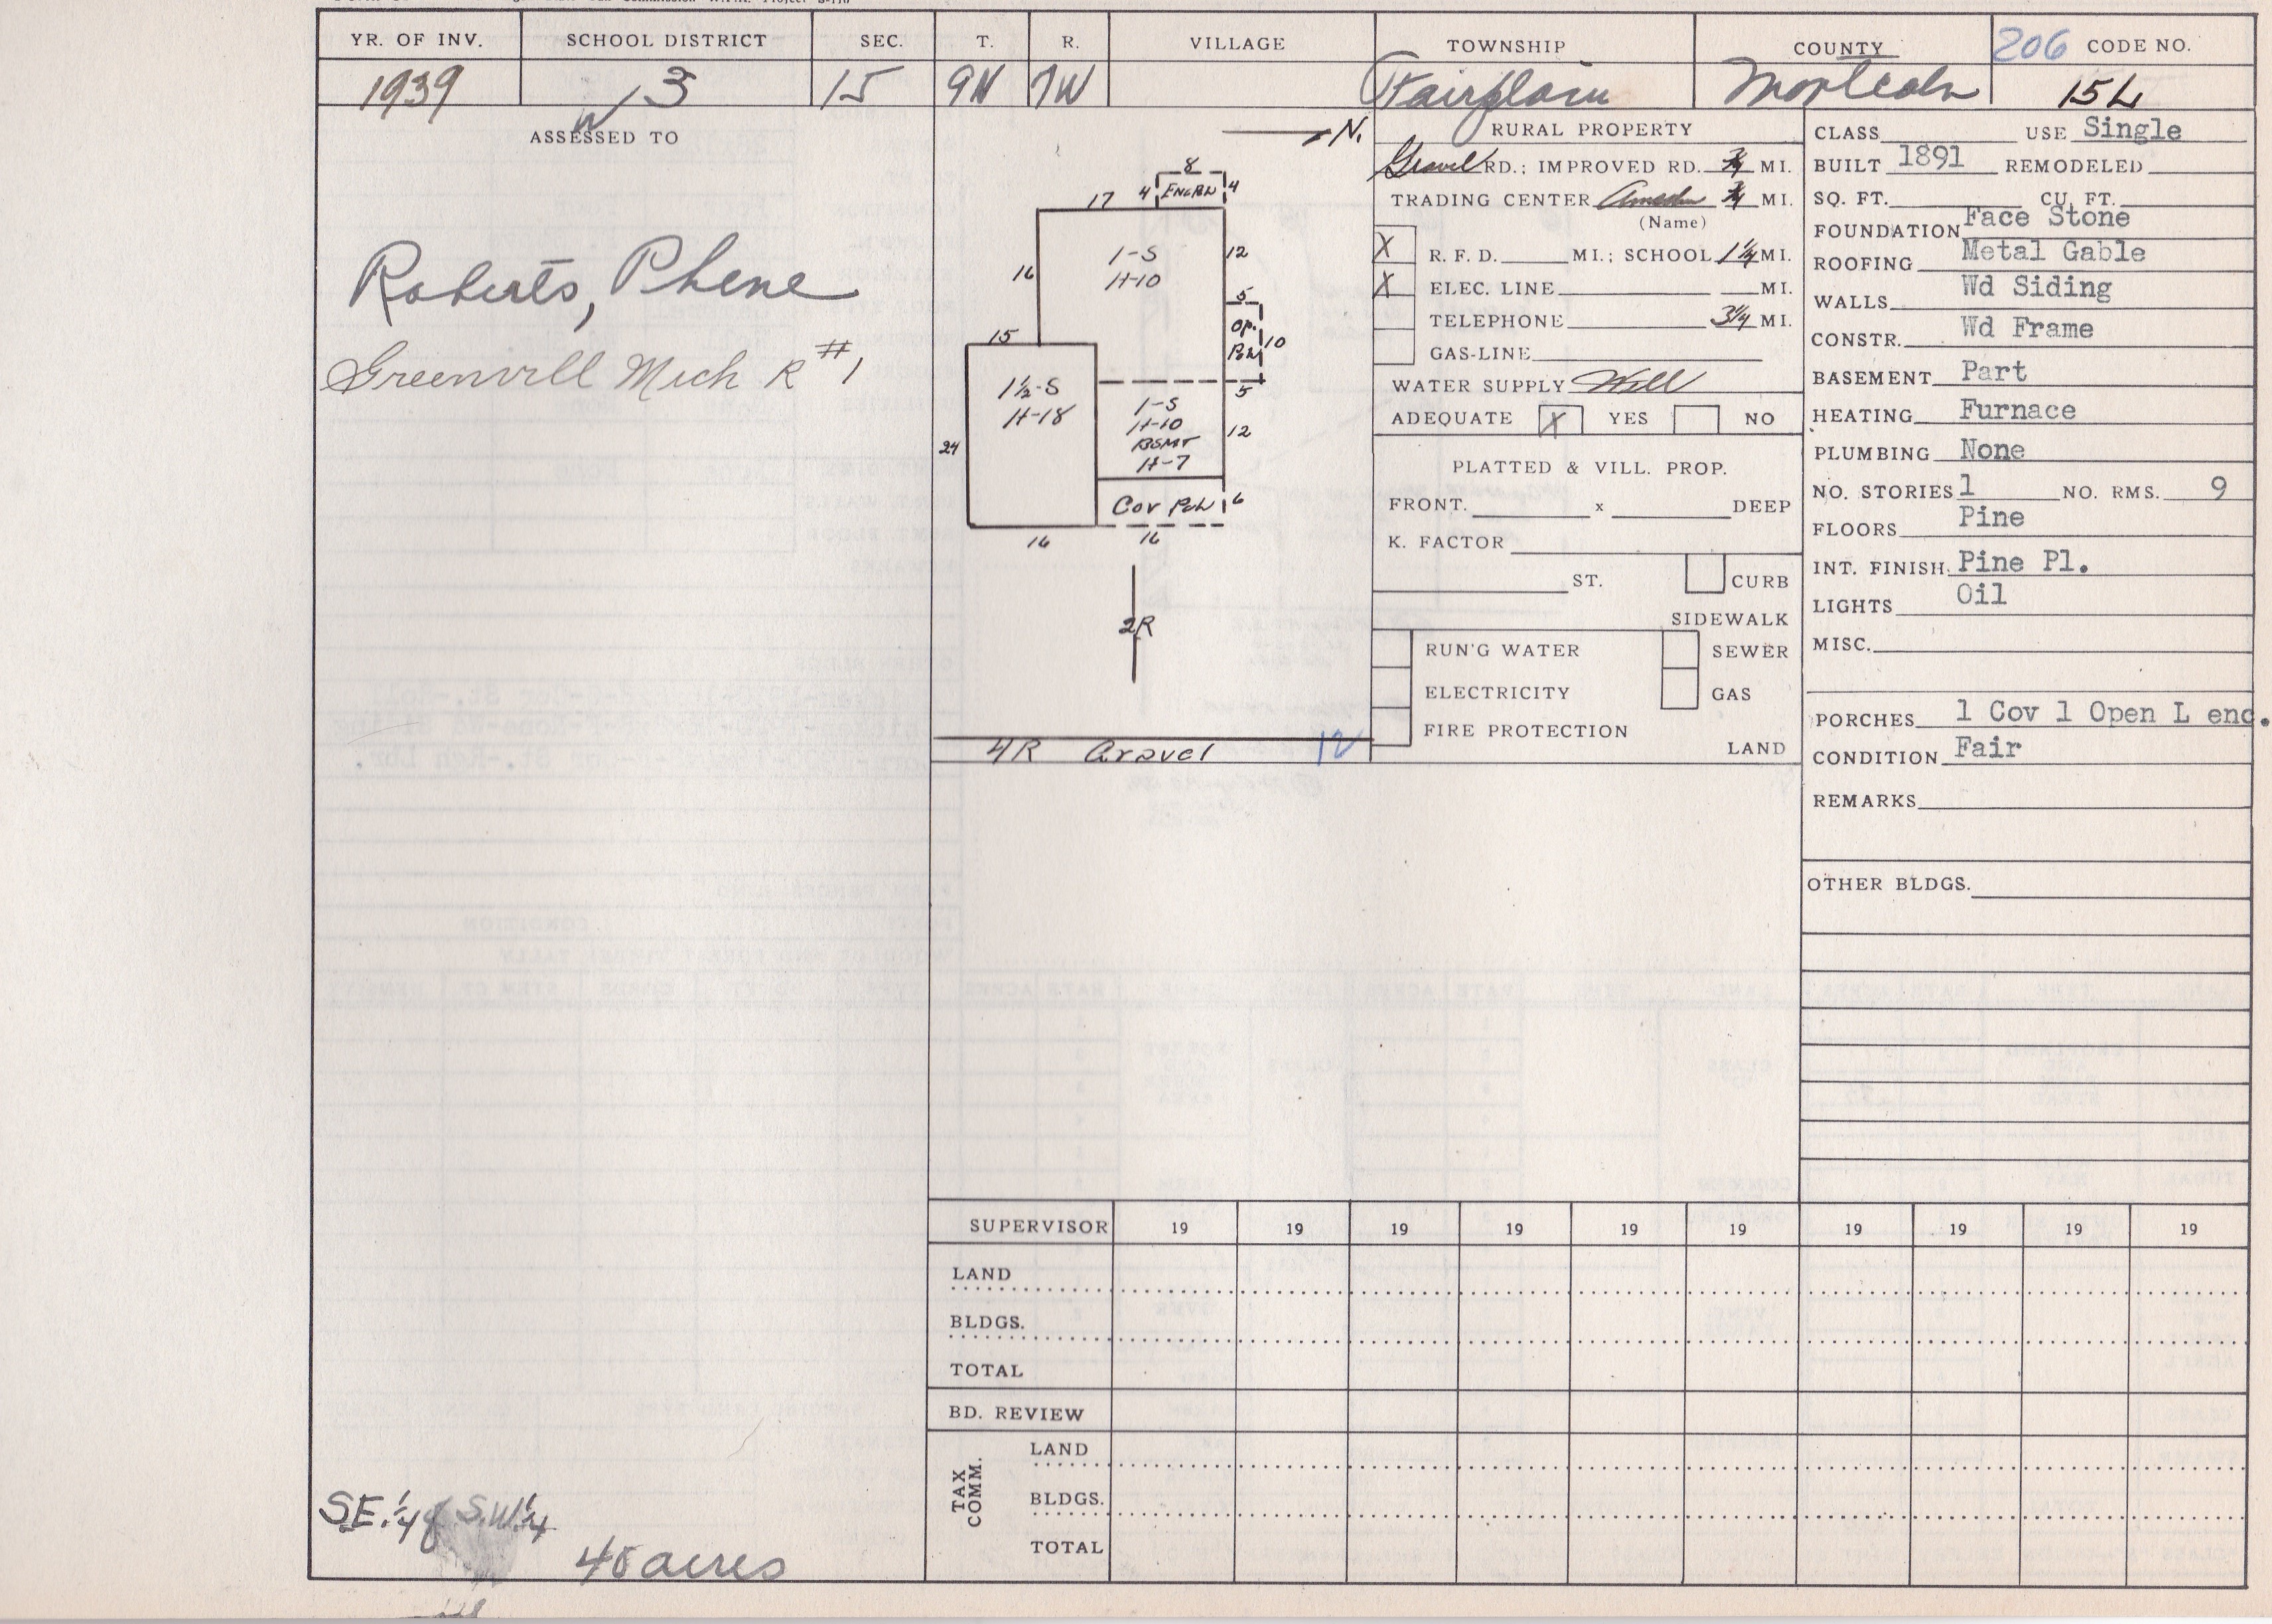 YR. OF INV. SCHOOL DISTRICT SEC. T. R. VILLAGE TOWNSHIP COUNTY 206 CODE NO.
1939 3 15 9N 7W Fairplain Montcalm 15L
ASSESSED TO
Roberts, Phene
Greenvill Mich R #1
SE.1/4 of S.W.1/4
40 acres
N.
8
17 4 ENCPch 4
1-S
H-10
16 12
5
OP.
Pch 10
5
15
1½-S
H-18
24
1-S
H-10
BSMT
H-7
12
Cov Pch 6
16 16
2R
4R Gravel 12
RURAL PROPERTY
Gravel RD.; IMPROVED RD. ¾ MI.
TRADING CENTER Amsden ¾ MI.
(Name)
X R. F. D. MI.; SCHOOL 1¼ MI.
X ELEC. LINE MI.
TELEPHONE 3¼ MI.
GAS-LINE
WATER SUPPLY Well
ADEQUATE X YES NO
PLATTED & VILL. PROP.
FRONT. x DEEP
K. FACTOR
ST. CURB
SIDEWALK
RUN'G WATER SEWER
ELECTRICITY GAS
FIRE PROTECTION
LAND
CLASS USE Single
BUILT 1891 REMODELED
SQ. FT. CU. FT.
FOUNDATION Face Stone
ROOFING Metal Gable
WALLS Wd Siding
CONSTR. Wd Frame
BASEMENT Part
HEATING Furnace
PLUMBING None
NO. STORIES 1 NO. RMS. 9
FLOORS Pine
INT. FINISH. Pine Pl.
LIGHTS Oil
MISC.
PORCHES 1 Cov 1 Open L enc.
CONDITION Fair
REMARKS
OTHER BLDGS.
SUPERVISOR 19 19 19 19 19 19 19 19 19 19
LAND
BLDGS.
TOTAL
BD. REVIEW
TAX COMM.
LAND
BLDGS.
TOTAL